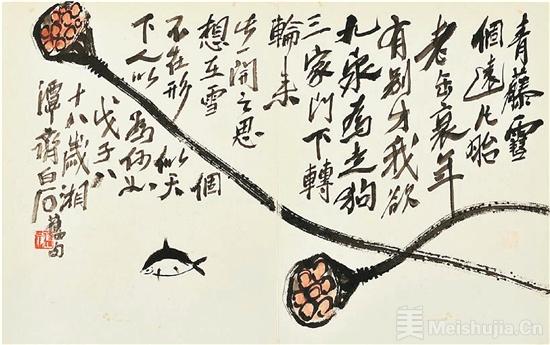 青藤雪
個遠凡胎
老缶衰年
有别才我欲
九泉為走狗
三家門下轉
輪來
此一開之思
想在雪個
不在形似天
下人以為何如
戊子八
十八歲湘
潭齊白石舊句
美 Meishujia.Cn